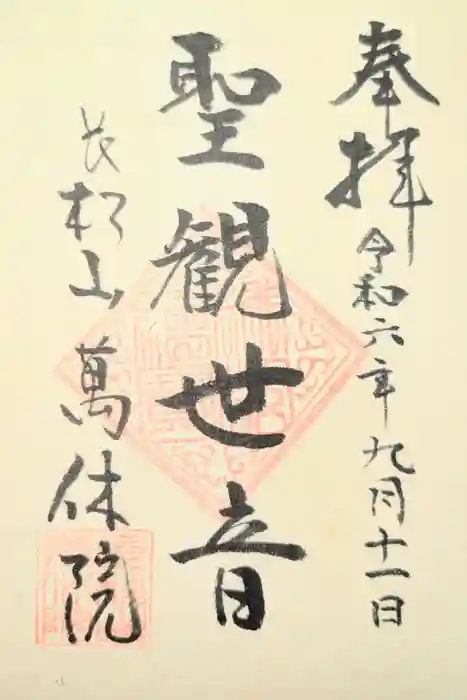 奉拝
令和六年九月十一日
聖観世音
長松山萬休院